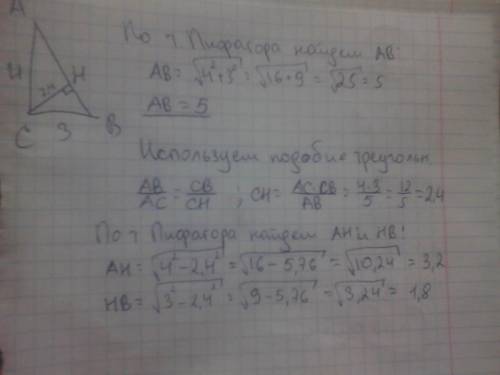 A
По т. Пифагора найдем AB:
4
2,4
H
AB = √4²+3² = √16+9 = √25 = 5
AB = 5
C 3 B
Используем подобие треугольн.
AB/AC = CB/CH ; CH = AC·CB/AB = 4·3/5 = 12/5 = 2,4
По т. Пифагора найдем AH и HB!
AH = √4²-2,4² = √16-5,76 = √10,24 = 3,2
HB = √3²-2,4² = √9-5,76 = √3,24 = 1,8